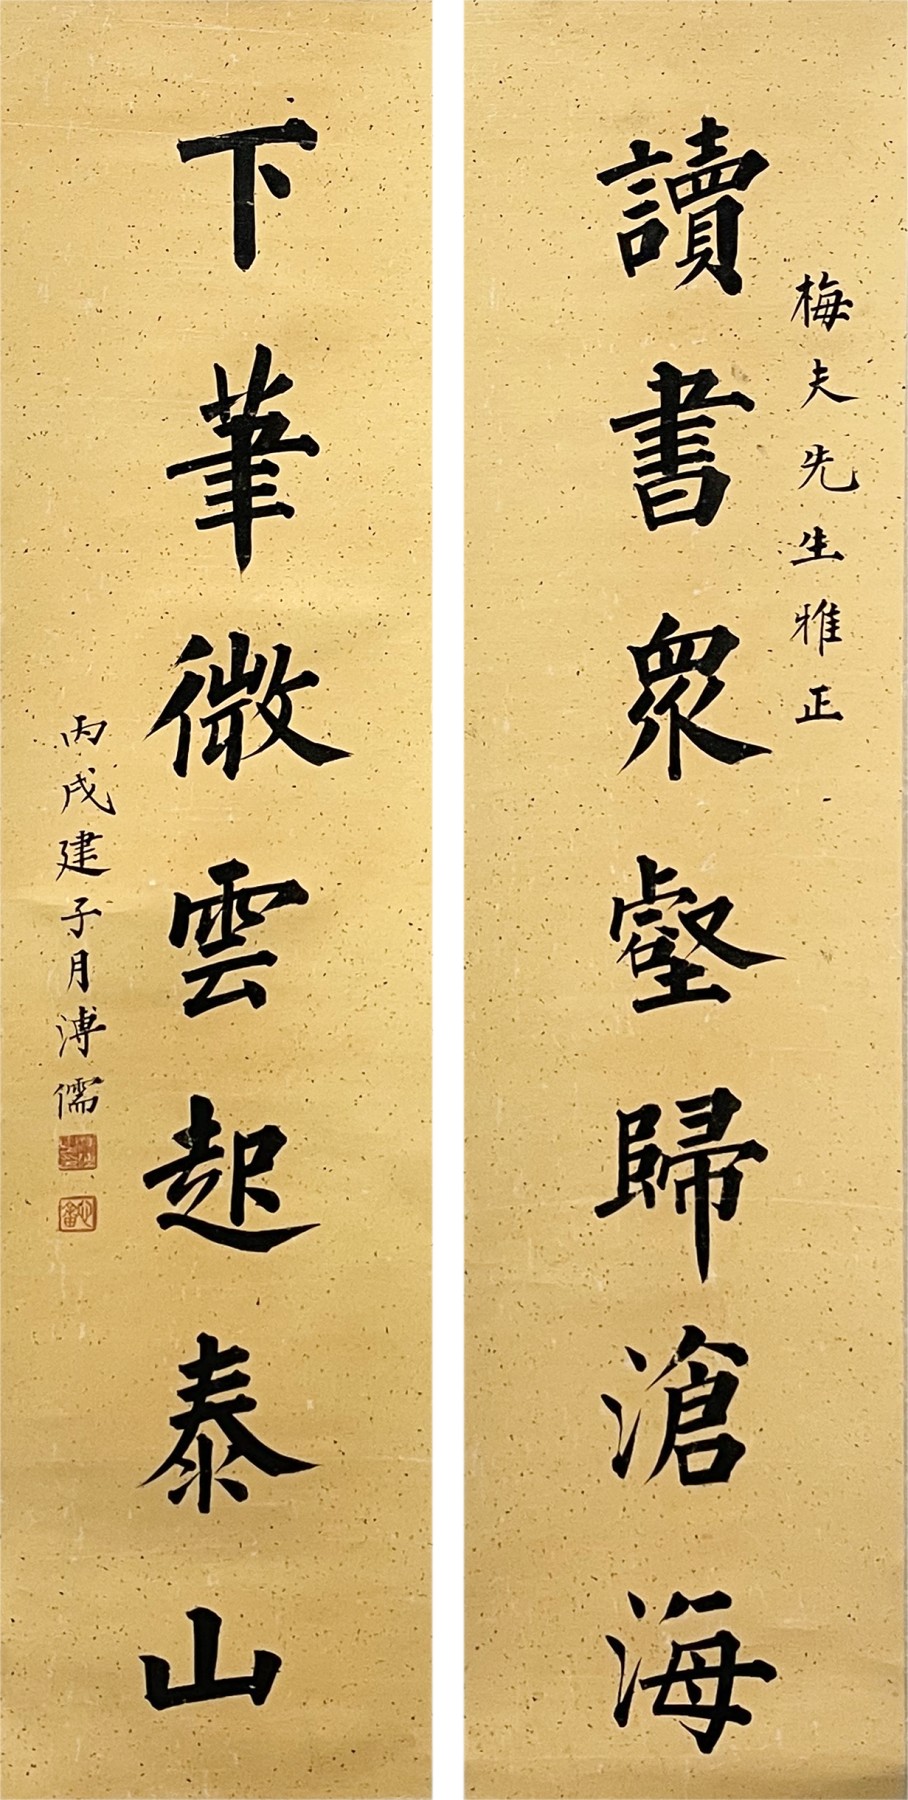 梅夫先生雅正
讀書衆壑歸滄海
下筆微雲起泰山
丙戌建子月溥儒